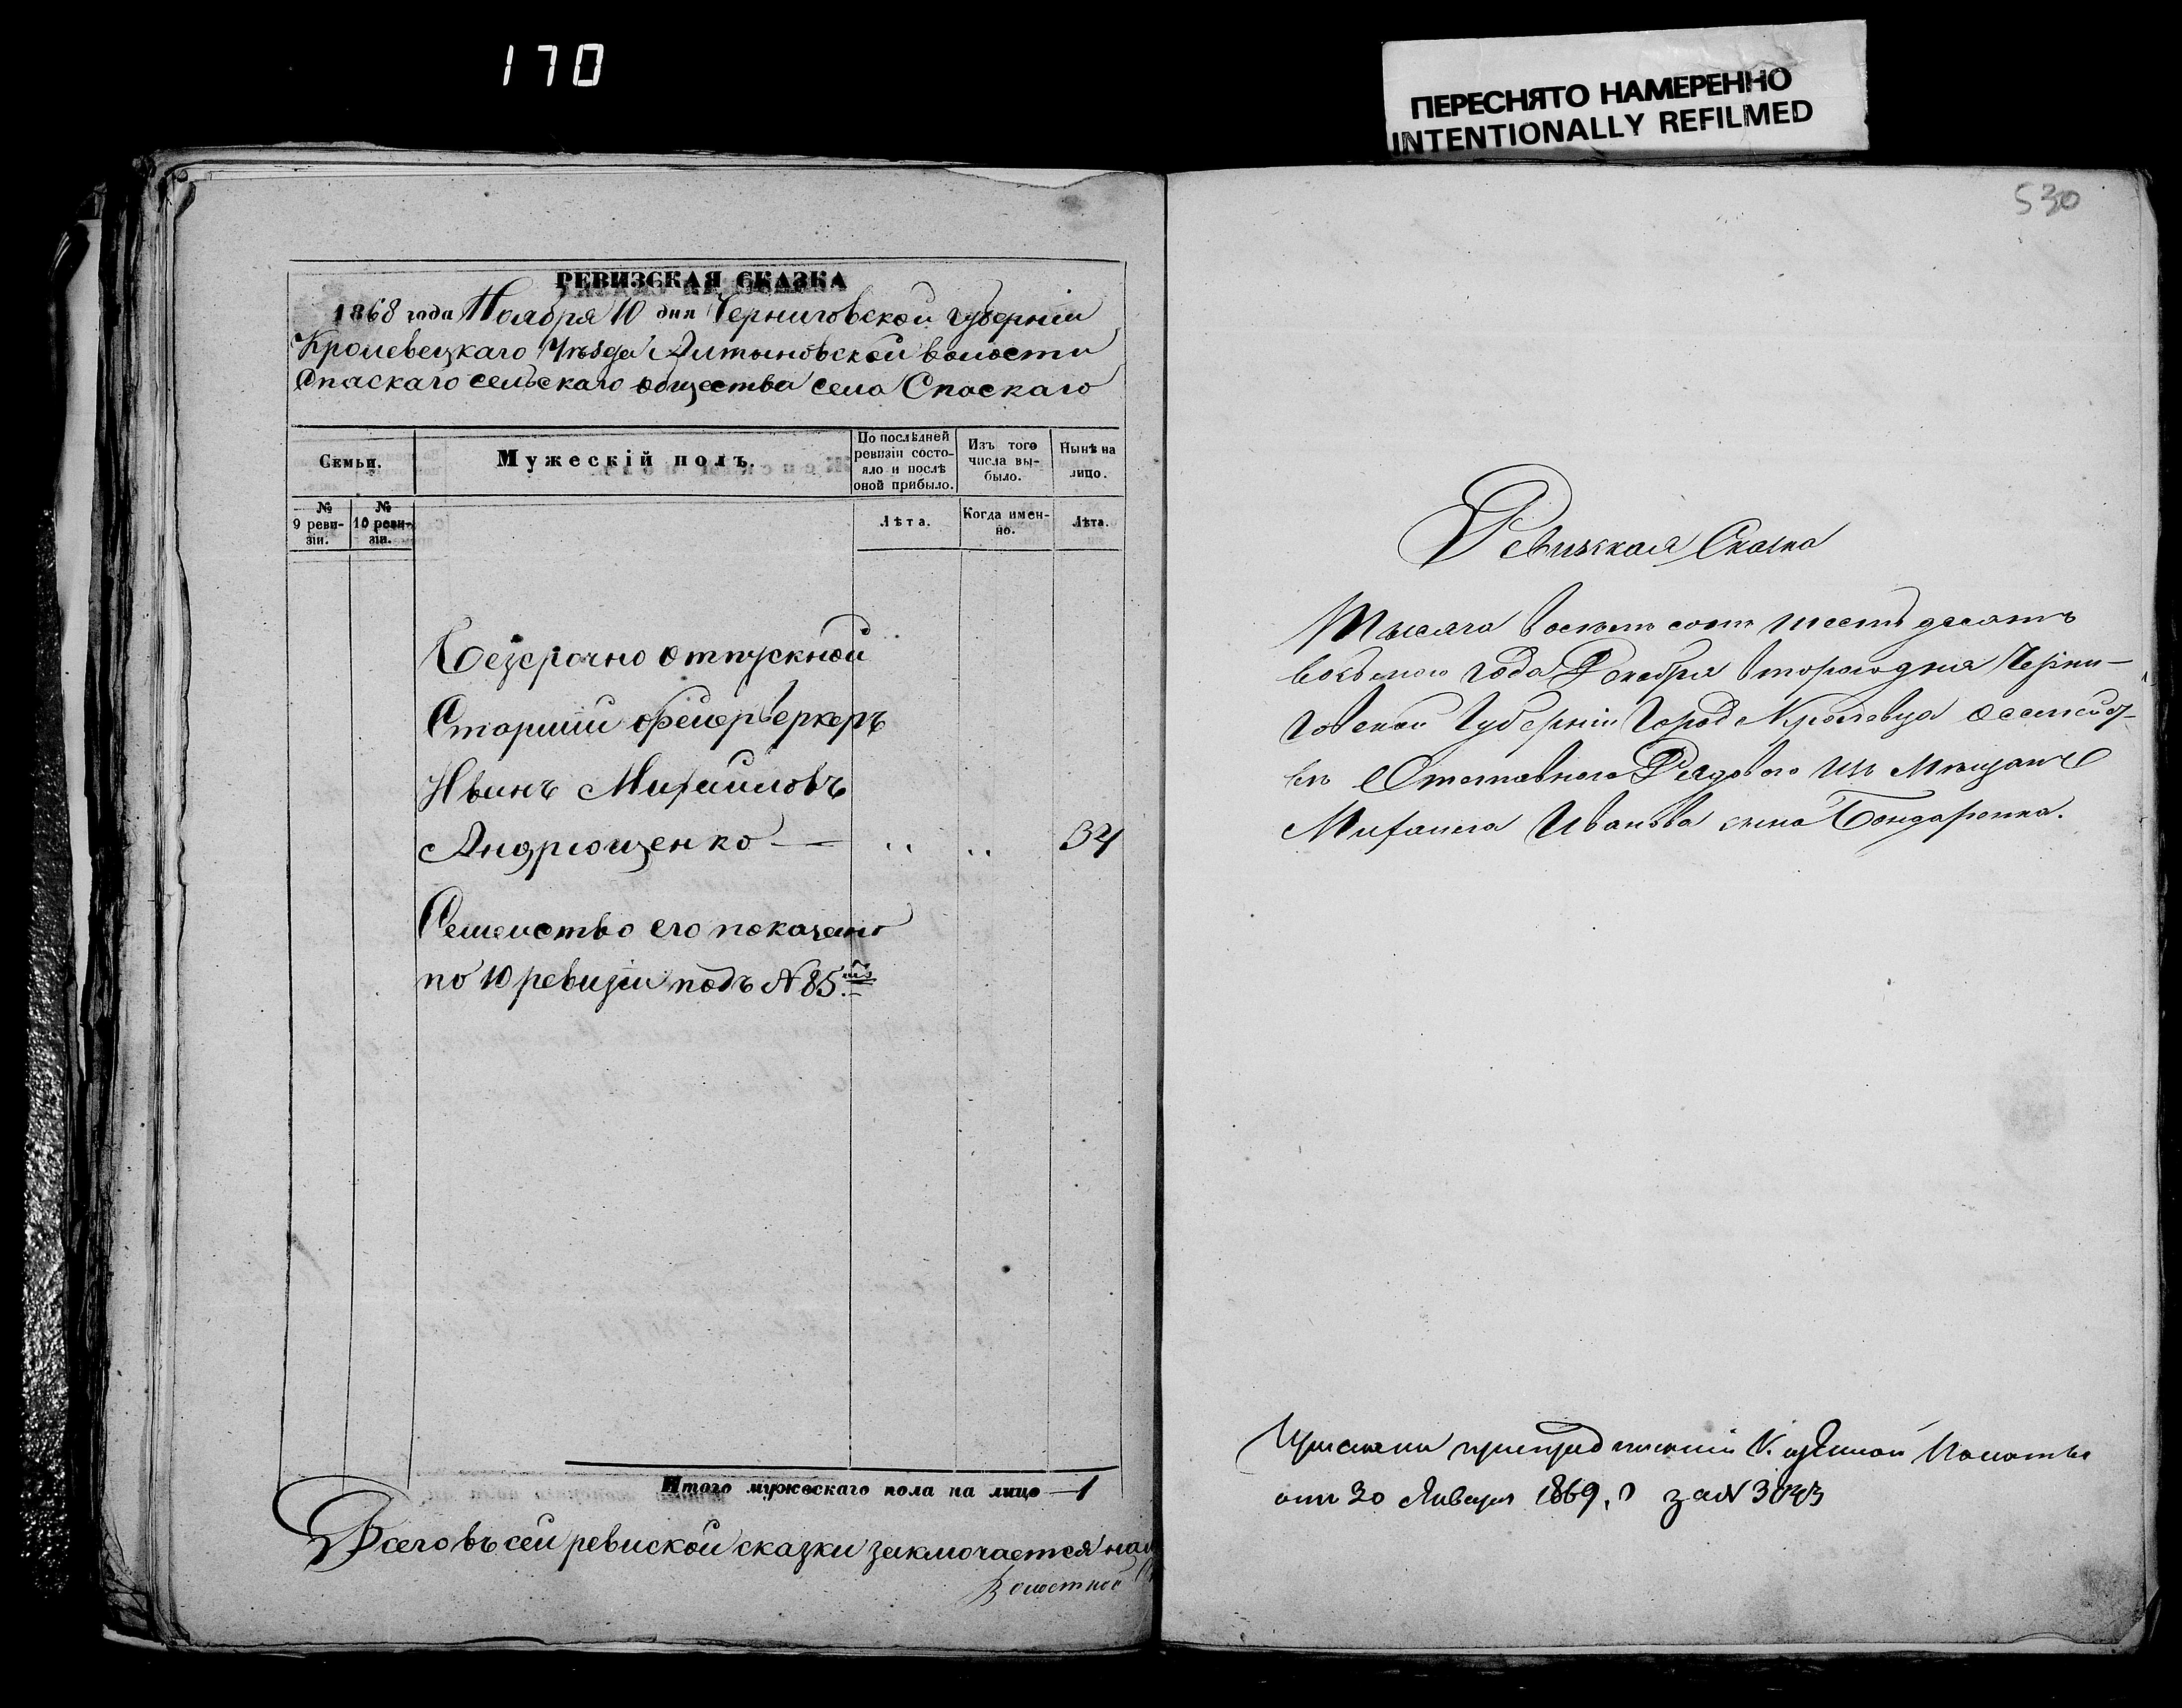 170
ПЕРЕСНЯТО НАМЕРЕННО
INTENTIONALLY REFILMED
РЕВИЗСКАЯ СКАЗКА
1868 года Ноября 10 дня Черниговской губерніи
Кролевецкаго Уѣзда Алтыновской волости
Спаскаго сельскаго общества села Спаскаго
Семьи.
Мужескій полъ.
По послѣдней
ревизіи состо-
яло и послѣ
оной прибыло.
Изъ того
числа вы-
было.
Нынѣ на
лицо.
№
9 реви-
зіи.
№
10 реви-
зіи.
Лѣта.
Когда имен-
но.
Лѣта.
Безсрочно отпускной
Старшій фейерверкеръ
Иванъ Михайловъ
Андрющенко — " " 34
Семейство его показано
по 10 ревизіи подъ № 85
Итого мужескаго пола на лицо — 1
Всего въ сей ревиской сказки заключается
Волостной
530
Ревизская Сказка
Тысяча восемь сотъ шесть десятъ
восьмого года Декабря второго дня Черни-
говской Губерніи Город Кролевца о семейст-
вѣ Отставного Рядового изъ Мѣщанъ
Михаила Иванова сына Бондаренка.
при предписаніи Казенной Палаты
отъ 30 Января 1869 г за №